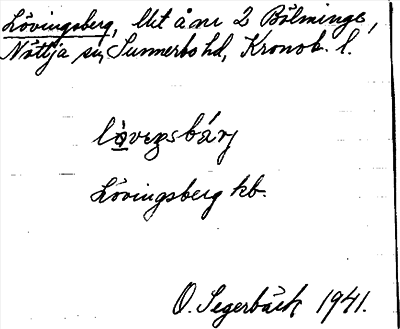 Lövingsberg, lht å nr 2 Bölminge,
Nöttja sn, Sunnerbo hd, Kronob. l.
Lövingsberg kb.
O. Segerbäck 1941.